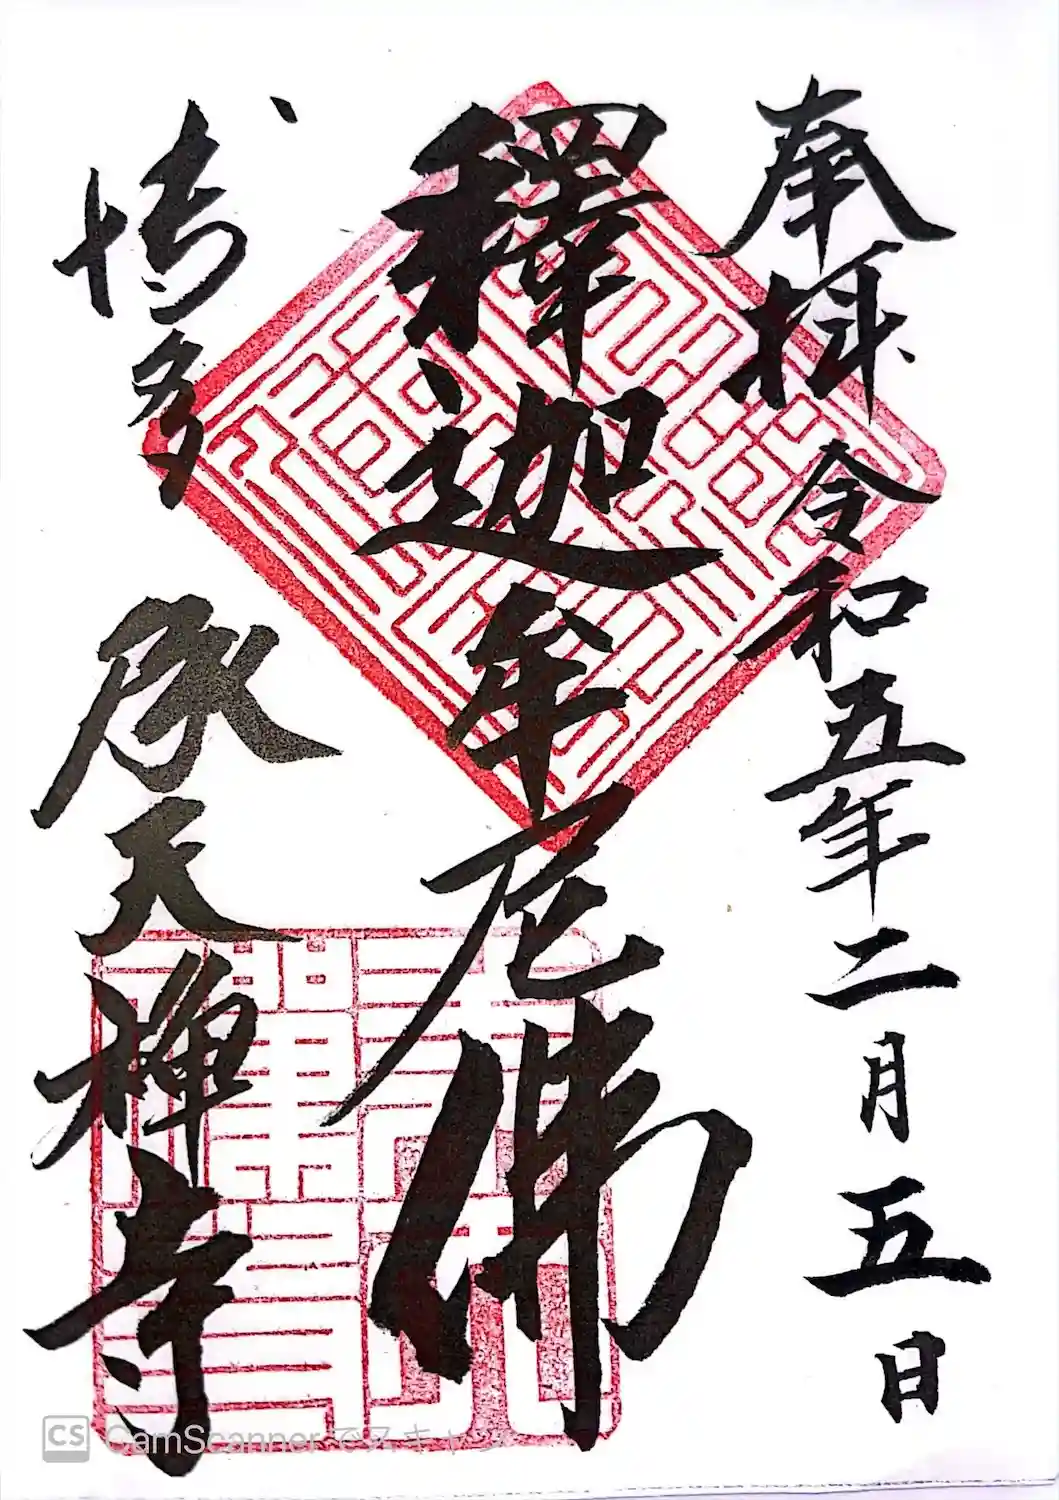 奉拝 令和五年二月五日
釋迦牟尼佛
博多 承天禅寺
CS CamScanner でスキャン